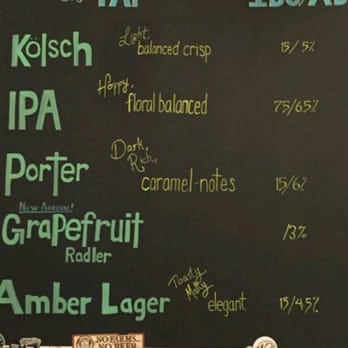 TAP IBU/AB
Kölsch Light, balanced crisp 15/5%
IPA Hoppy, floral balanced 75/6.5%
Porter Dark, Rich, caramel-notes 15/6%
New Arrival!
Grapefruit 13%
Radler
Amber Lager Toasty Malty elegant 15/4.5%
NO FARMS..
NO BEER